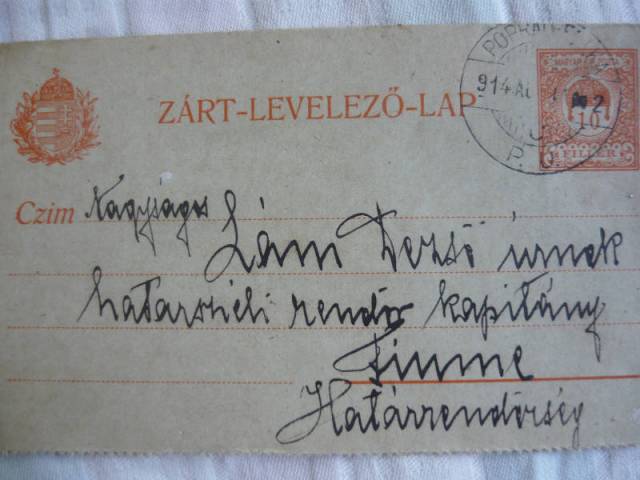 ZÁRT-LEVELEZŐ-LAP
914
10
FILLÉR
P. U.
Czim Nagyságos
Lám Dezső úrnek
határszéli rendőr kapitány
Fiume
Határrendőrség